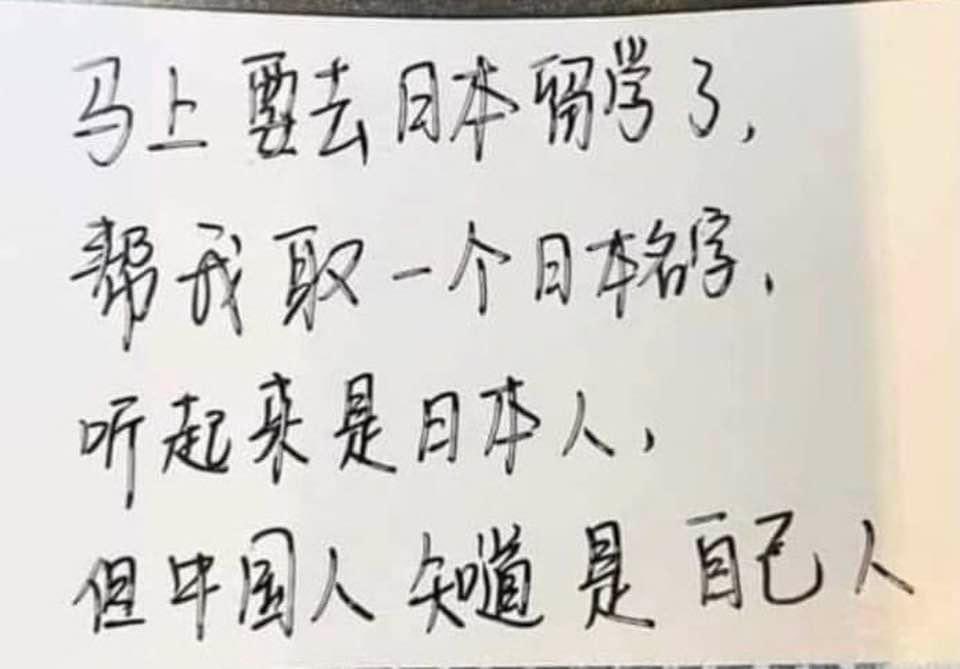 马上要去日本留学了,
帮我取一个日本名字,
听起来是日本人,
但中国人知道是自己人